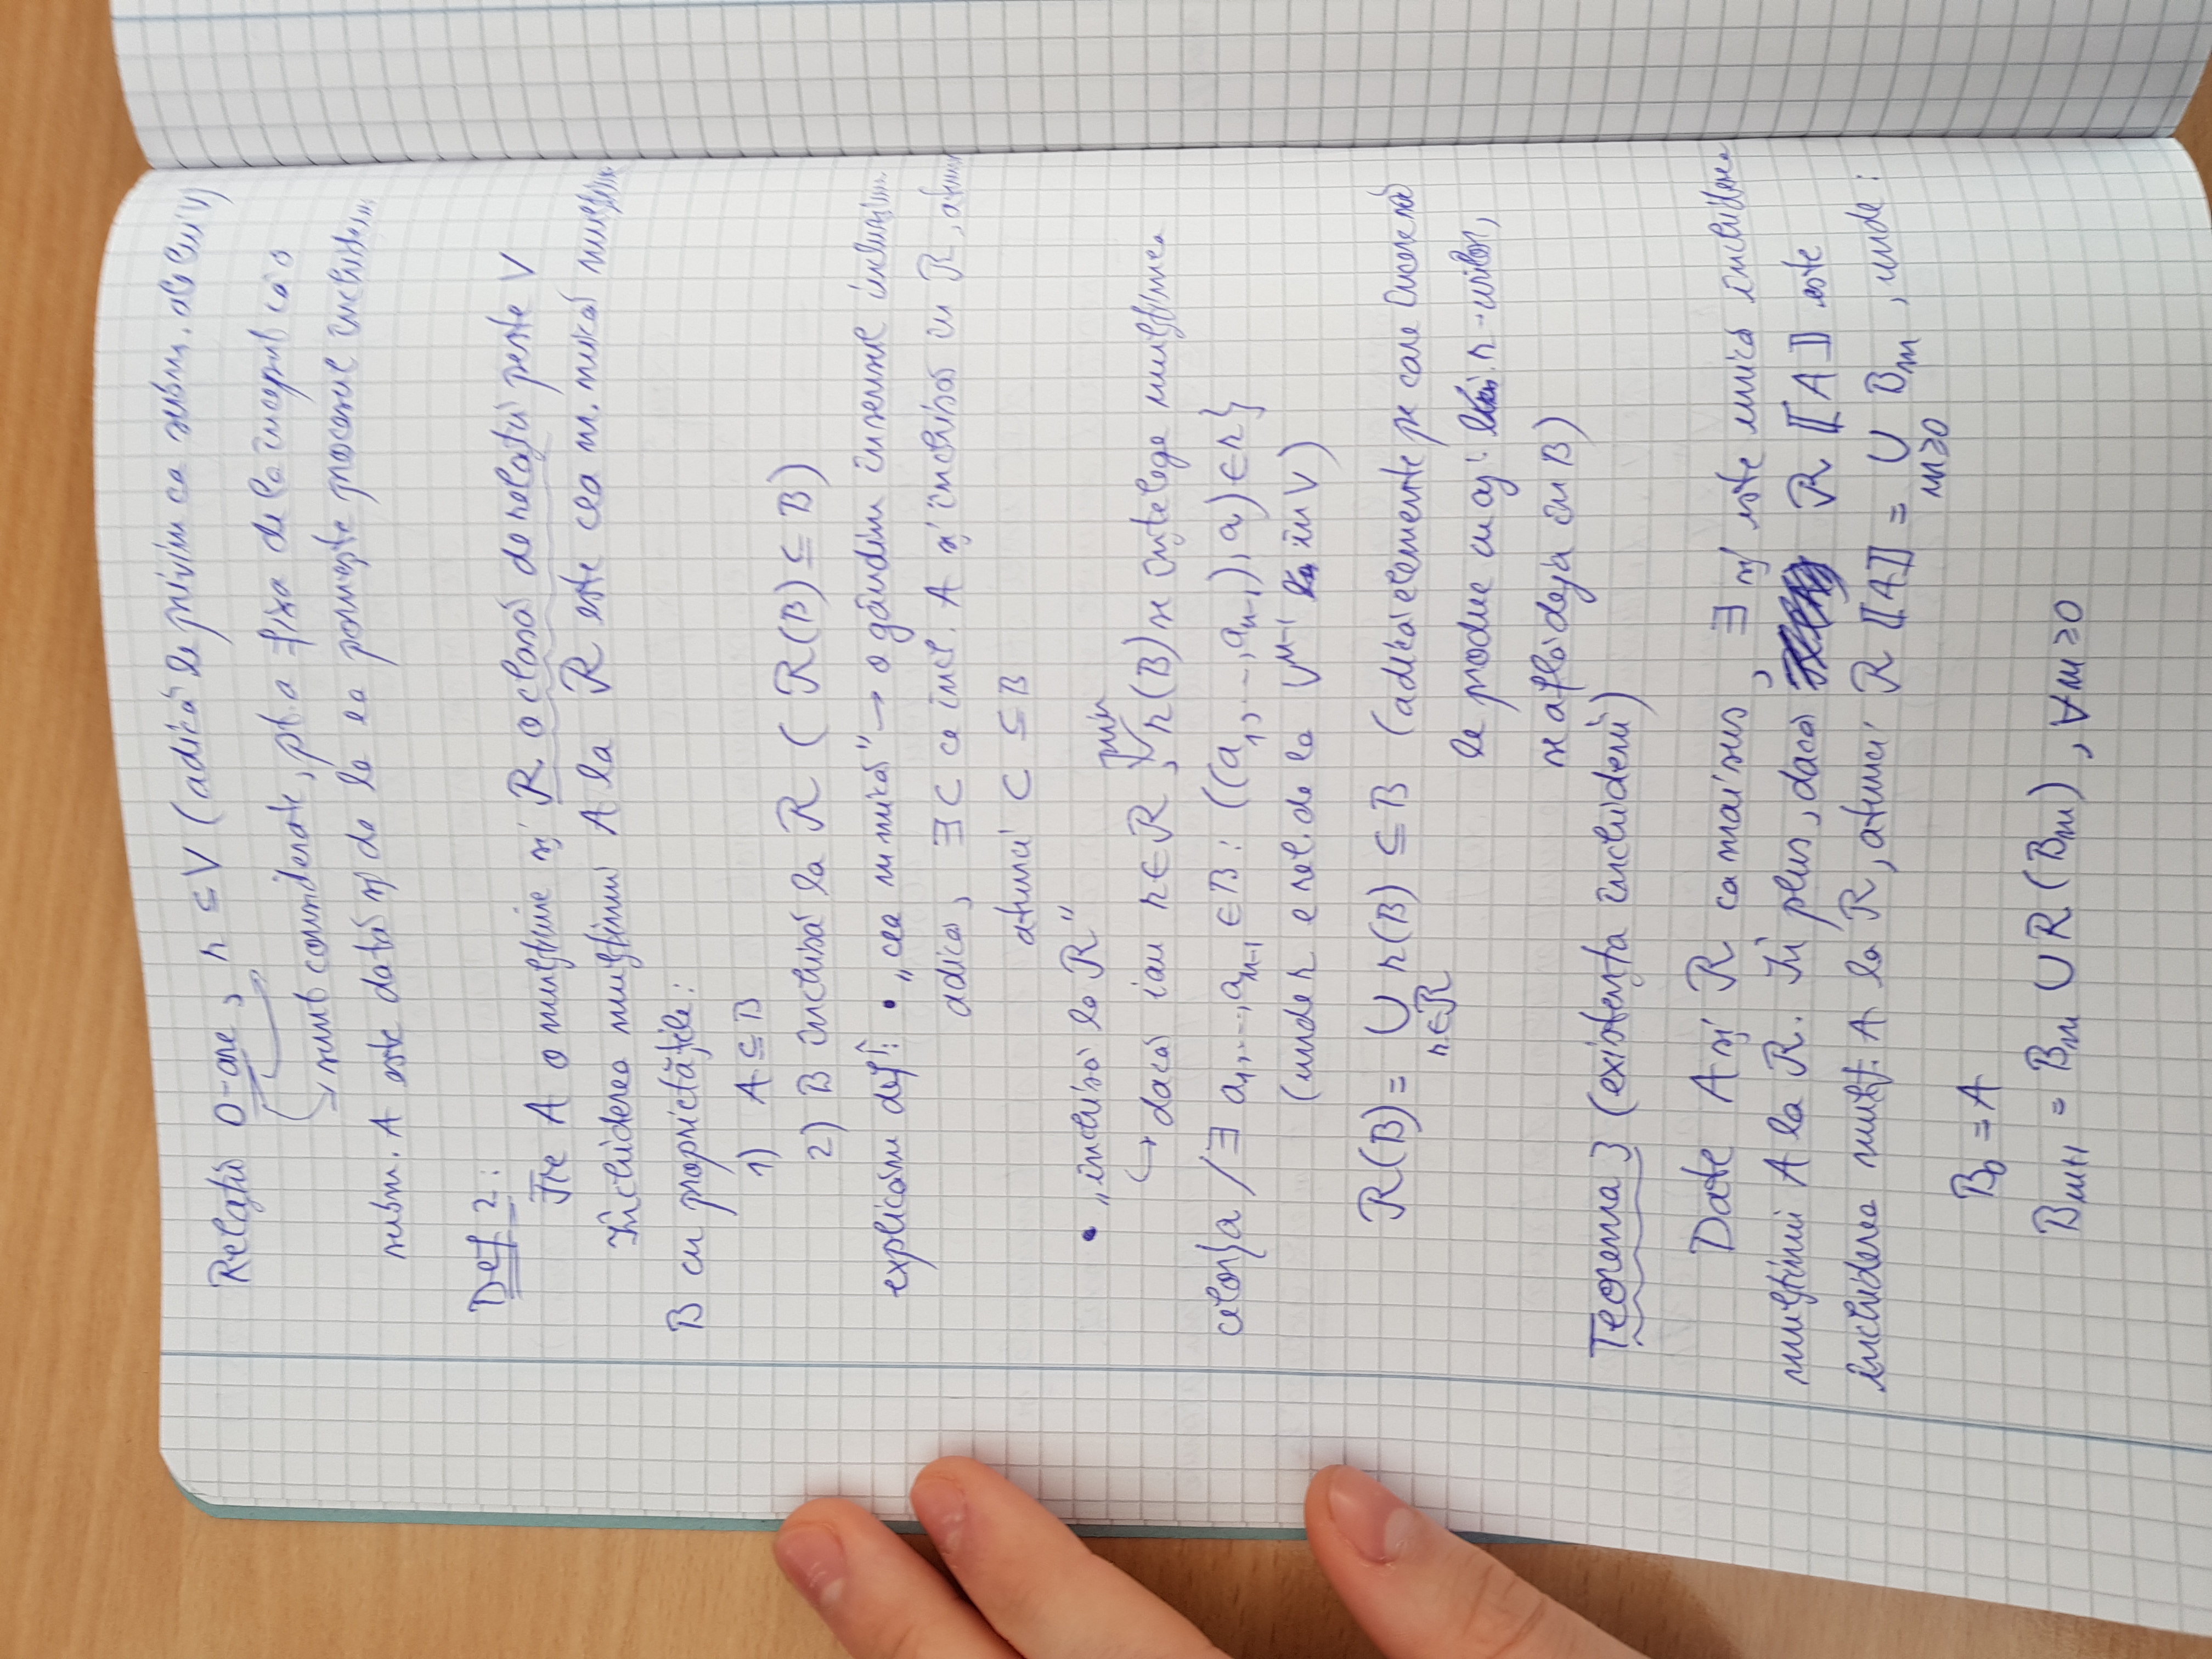 Relații 0-are, r ⊆ V (adică le privim ca subm. ale lui V)
→ sunt considerate, pt. a fixa de la început că o
subm. A este dată și de la ea pornește procesul
Def 2:
Fie A o mulțime și R o clasă de relații peste V
Închiderea mulțimii A la R este cea m. mică
B cu proprietățile:
1) A ⊆ B
2) B închisă la R ( R(B) ⊆ B)
explicăm def: • „cea m mică" → o gândim în sensul
adică, ∃ C ce incl. A și închisă în R,
atunci C ⊆ B
• „închisă la R"
prin
↪ dacă iau r ∈ R, r(B) se înțelege mulțimea
celor {a / ∃ a₁,...,aₙ₋₁ ∈ B : ((a₁,...,aₙ₋₁), a) ∈ r}
(unde r e rel. de la Vⁿ⁻¹ în V)
R(B) = ∪ r(B) ⊆ B (adică elemente pe care încerc să
r∈R
le produc cu aj. r-urilor,
se află deja în B)
Teorema 3 (existența închiderii)
Date A și R ca mai sus, ∃ și este unică închiderea
mulțimii A la R. În plus, dacă R ⟦A⟧ este
închiderea mulț. A la R, atunci R ⟦A⟧ = ∪ Bₘ, unde:
m≥0
B₀ = A
Bₘ₊₁ = Bₘ ∪ R (Bₘ), ∀ m ≥ 0